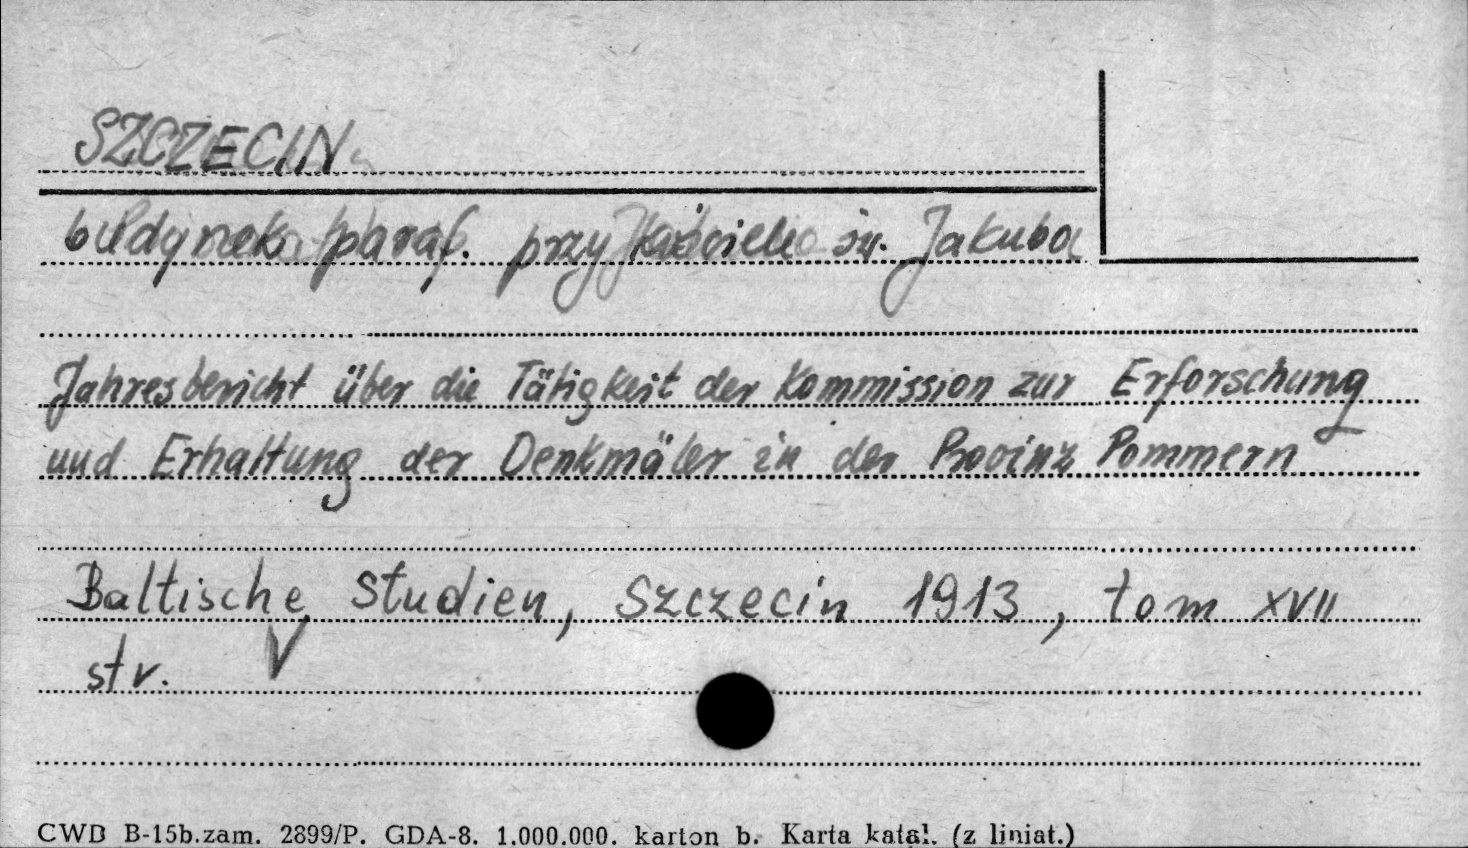 SZCZECIN
budynek paraf. przy kościele św. Jakuba
Jahresbericht über die Tätigkeit der Kommission zur Erforschung
und Erhaltung der Denkmäler in der Provinz Pommern
Baltische Studien, Szczecin 1913, tom XVII
str. V
CWD B-15b.zam. 2899/P. GDA-8. 1.000.000. karton b. Karta katal. (z liniat.)